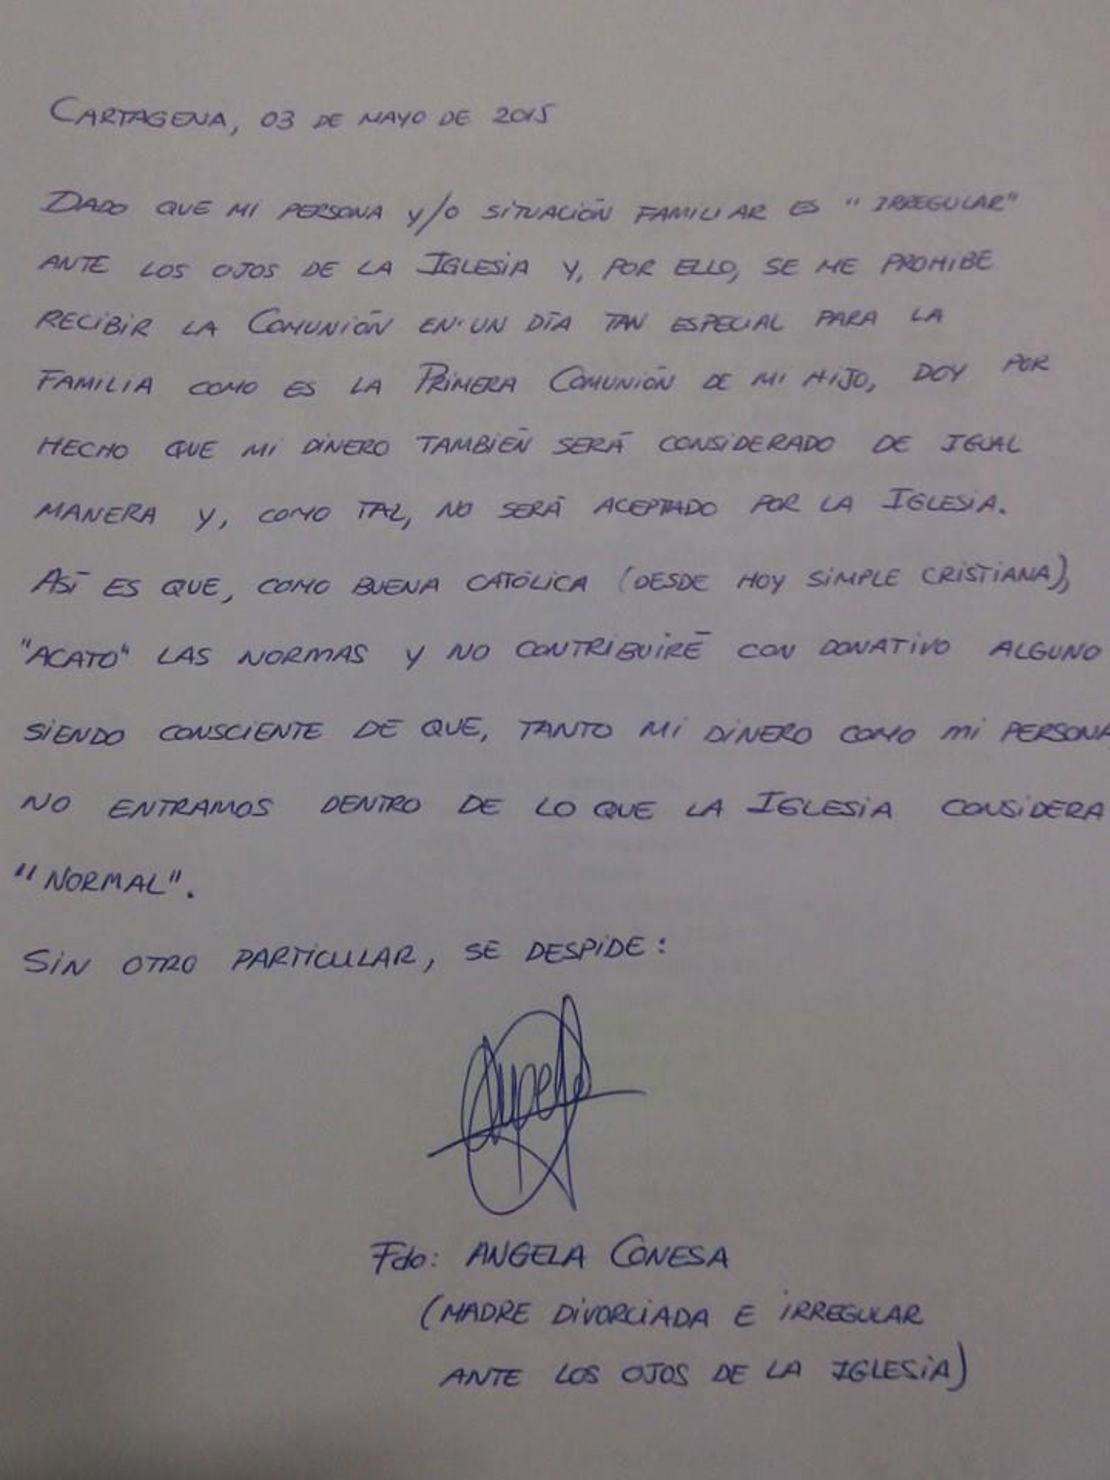 CARTAGENA, 03 DE MAYO DE 2015
DADO QUE MI PERSONA Y/O SITUACIÓN FAMILIAR ES "IRREGULAR"
ANTE LOS OJOS DE LA IGLESIA Y, POR ELLO, SE ME PROHIBE
RECIBIR LA COMUNIÓN EN UN DÍA TAN ESPECIAL PARA LA
FAMILIA COMO ES LA PRIMERA COMUNIÓN DE MI HIJO, DOY POR
HECHO QUE MI DINERO TAMBIÉN SERÁ CONSIDERADO DE IGUAL
MANERA Y, COMO TAL, NO SERÁ ACEPTADO POR LA IGLESIA.
ASÍ ES QUE, COMO BUENA CATÓLICA (DESDE HOY SIMPLE CRISTIANA),
"ACATO" LAS NORMAS Y NO CONTRIBUIRÉ CON DONATIVO ALGUNO
SIENDO CONSCIENTE DE QUE, TANTO MI DINERO COMO MI PERSONA
NO ENTRAMOS DENTRO DE LO QUE LA IGLESIA CONSIDERA
"NORMAL".
SIN OTRO PARTICULAR, SE DESPIDE:
Fdo: ANGELA CONESA
(MADRE DIVORCIADA E IRREGULAR
ANTE LOS OJOS DE LA IGLESIA)